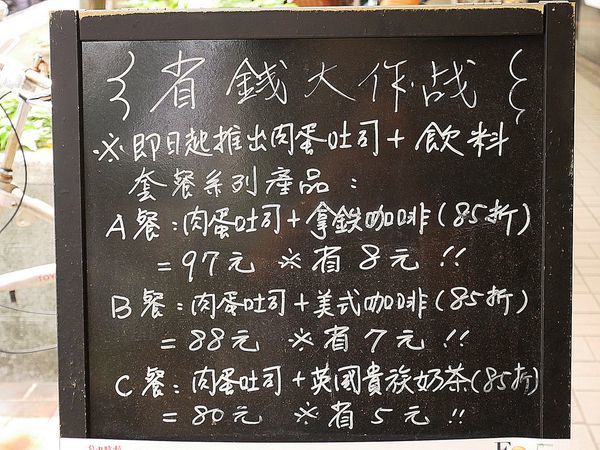 {省錢大作战}
※即日起推出肉蛋吐司+飲料
套餐系列產品:
A餐:肉蛋吐司+拿鉄咖啡(85折)
=97元 ※省8元!!
B餐:肉蛋吐司+美式咖啡(85折)
=88元 ※省7元!!
C餐:肉蛋吐司+英國貴族奶茶(85折)
=80元 ※省5元!!